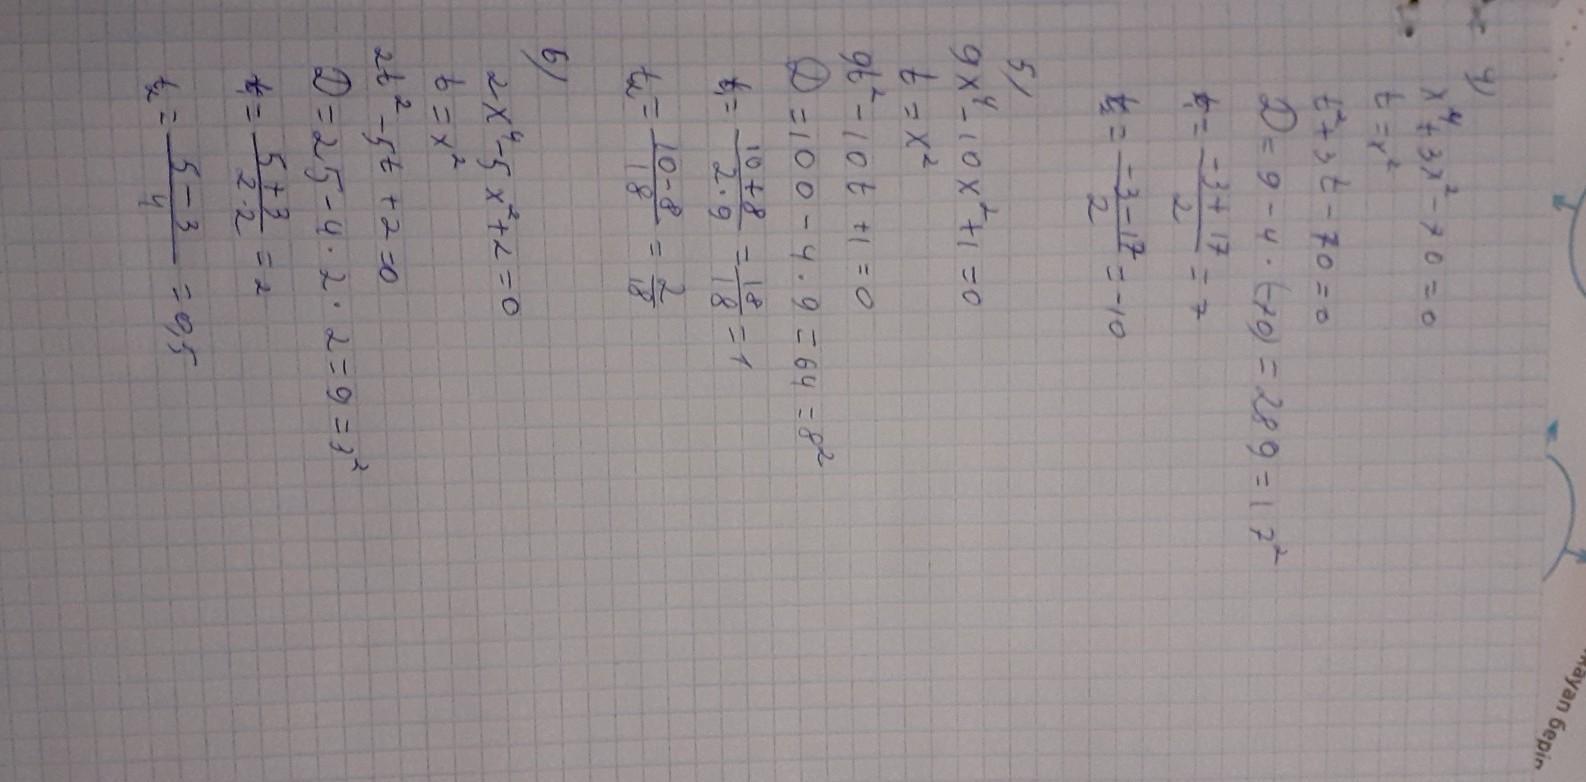 4)
x⁴+3x²-70=0
t=x²
t²+3t-70=0
D=9-4·(-70)=289=17²
t₁=(-3+17)/2=7
t₂=(-3-17)/2=-10
5)
9x⁴-10x²+1=0
t=x²
9t²-10t+1=0
D=100-4·9=64=8²
t₁=(10+8)/(2·9)=18/18=1
t₂=(10-8)/18=2/18
6)
2x⁴-5x²+2=0
t=x²
2t²-5t+2=0
D=25-4·2·2=9=3²
t₁=(5+3)/(2·2)=2
t₂=(5-3)/4=0,5